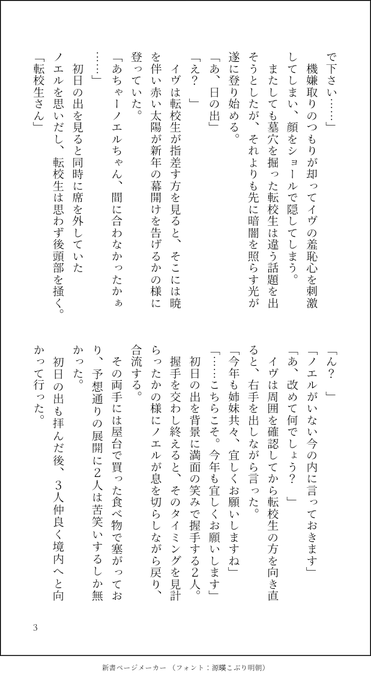 で下さい……」
　機嫌取りのつもりが却ってイヴの羞恥心を刺激
してしまい、顔をショールで隠してしまう。
　またしても墓穴を掘った転校生は違う話題を出
そうとしたが、それよりも先に暗闇を照らす光が
遂に登り始める。
「あ、日の出」
「え？　」
　イヴは転校生が指差す方を見ると、そこには暁
を伴い赤い太陽が新年の幕開けを告げるかの様に
登っていた。
「あちゃーノエルちゃん、間に合わなかったかぁ
……」
　初日の出を見ると同時に席を外していた
ノエルを思いだし、転校生は思わず後頭部を掻く。
「転校生さん」
「ん？　」
「ノエルがいない今の内に言っておきます」
「あ、改めて何でしょう？　」
　イヴは周囲を確認してから転校生の方を向き直
ると、右手を出しながら言った。
「今年も姉妹共々、宜しくお願いしますね」
「……こちらこそ。今年も宜しくお願いします」
　初日の出を背景に満面の笑みで握手する２人。
　握手を交わし終えると、そのタイミングを見計
らったかの様にノエルが息を切らしながら戻り、
合流する。
　その両手には屋台で買った食べ物で塞がってお
り、予想通りの展開に２人は苦笑いするしか無
かった。
　初日の出も拝んだ後、３人仲良く境内へと向
かって行った。
3
新書ページメーカー（フォント：源暎こぶり明朝）